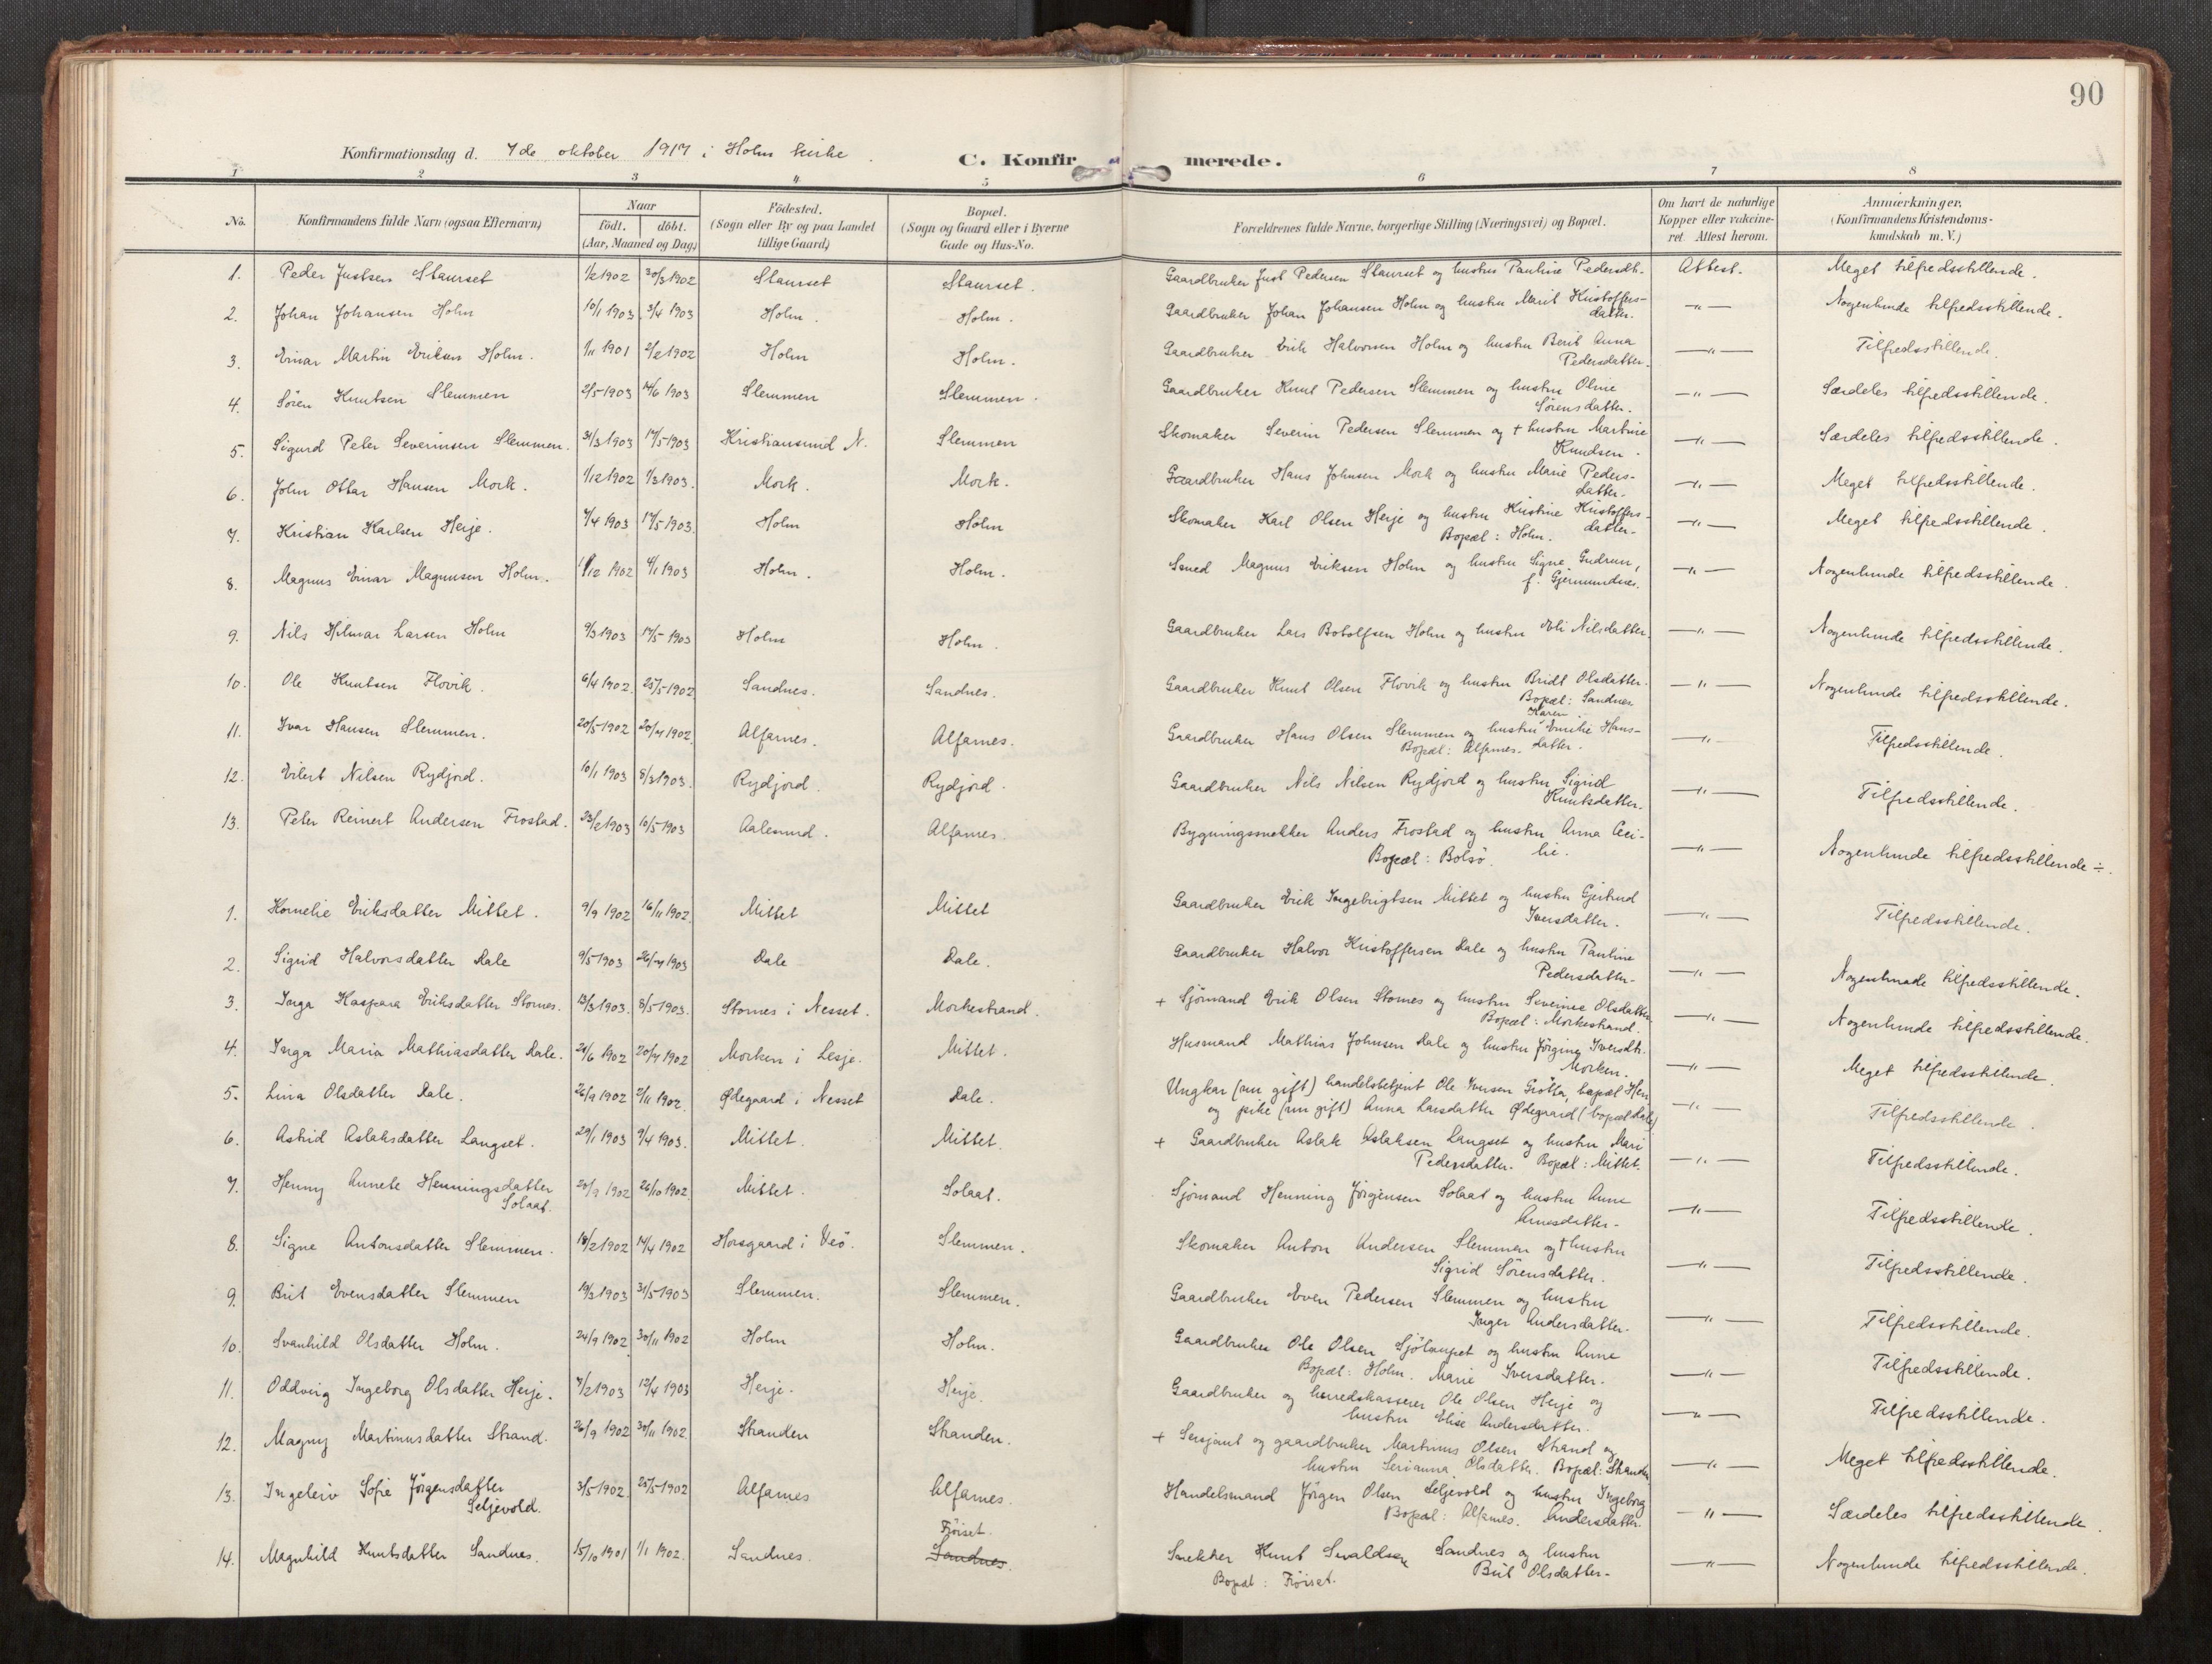 90
Konfirmationsdag d. 7de oktober 1917 i Holm kirke.
C. Konfirmerede.
1 2 3 4 5 6 7 8
No. Konfirmandens fulde Navn (ogsaa Efternavn) Naar födt. döbt. (Aar, Maaned og Dag) Födested. (Sogn eller By og paa Landet tillige Gaard) Bopæl. (Sogn og Gaard eller i Byerne Gade og Hus-No. Forældrenes fulde Navne, borgerlige Stilling (Næringsvei) og Bopæl. Om havt de naturlige Kopper eller vakcineret. Attest herom. Anmærkninger. (Konfirmandens Kristendomskundskab m. V.)
1. Peder Justsen Staurset 1/2 1902 30/3 1902 Staurset Staurset. Gaardbruker Just Pedersen Staurset og hustru Pauline Pedersdt. Attest. Meget tilfredsstillende.
2. Johan Johansen Holm 10/1 1903 3/4 1903 Holm. Holm. Gaardbruker Johan Johansen Holm og hustru Marit Kristoffers-
datter. —"— Nogenlunde tilfredsstillende.
3. Einar Martin Eriksen Holm. 1/11 1901 2/2 1902 Holm Holm. Gaardbruker Erik Halvorsen Holm og hustru Berit Anna
Pedersdatter. —"— Tilfredsstillende.
4. Sören Knutsen Slemmen 2/5 1903 14/6 1903 Slemmen Slemmen. Gaardbruker Knut Pedersen Slemmen og hustru Oline
Sörensdatter. —"— Særdeles tilfredsstillende.
5. Sigurd Peter Severinsen Slemmen. 31/3 1903 17/5 1903 Kristiansund N. Slemmen Skomaker Severin Pedersen Slemmen og + hustru Martine
Knudsen. —"— Særdeles tilfredsstillende.
6. John Ottar Hansen Mork. 1/12 1902 1/3 1903. Mork. Mork. Gaardbruker Hans Johnsen Mork og hustru Marie Peders-
datter. —"— Meget tilfredsstillende.
7. Kristian Karlsen Herje. 7/4 1903 17/5 1903. Holm Holm Skomaker Karl Olsen Herje og hustru Kristine Kristoffers-
Bopæl: Holm. datter. —"— Meget tilfredsstillende.
8. Magnus Einar Magnusen Holm. /12 1902 4/1 1903 Holm. Holm. Smed Magnus Eriksen Holm og hustru Signe Gudrun,
f. Gjermundnes. —"— Nogenlunde tilfredsstillende.
9. Nils Hilmar Larsen Holm 9/3 1903 17/5 1903 Holm Holm. Gaardbruker Lars Botolfsen Holm og hustru Eli Nilsdatter. —"— Nogenlunde tilfredsstillende.
10. Ole Knutsen Flovik. 6/4 1902. 25/5 1902 Sandnes. Sandnes. Gaardbruker Knut Olsen Flovik og hustru Bridt Olsdatter.
Bopæl: Sandnes —"— Nogenlunde tilfredsstillende.
11. Ivar Hansen Slemmen. 20/5 1902 20/7 1902. Alfarnes. Alfarnes. Gaardbruker Hans Olsen Slemmen og hustru Karen Emilie Hans-
Bopæl: Alfarnes. datter. —"— Tilfredsstillende.
12. Eilert Nilsen Rydjord. 10/1 1903 8/3 1903. Rydjord. Rydjord. Gaardbruker Nils Nilsen Rydjord og hustru Sigrid
Knutsdatter. —"— Tilfredsstillende.
13. Peter Reinert Andersen Frostad. 23/2 1903 10/5 1903 Aalesund. Alfarnes. Bygningssnekker Anders Frostad og hustru Anna Ceci-
Bopæl: Bolsö. lie. —"— Nogenlunde tilfredsstillende ÷.
1. Kornelie Eriksdatter Mittet. 9/9 1902 16/11 1902. Mittet Mittet Gaardbruker Erik Ingebrigtsen Mittet og hustru Gjertrud
Iversdatter. —"— Tilfredsstillende.
2. Sigrid Halvorsdatter Dale 9/5 1903 26/7 1903 Dale Dale. Gaardbruker Halvor Kristoffersen Dale og hustru Pauline
Pedersdatter. —"— Nogenlunde tilfredsstillende.
3. Inga Kaspara Eriksdatter Stornes. 13/3 1903. 8/5 1903. Stornes i Nesset. Morkestrand. + Sjömand Erik Olsen Stornes og hustru Severine Olsdatter
Bopæl: Morkestrand. —"— Nogenlunde tilfredsstillende.
4. Inga Maria Mathiasdatter Dale. 24/6 1902 20/7 1902 Morken i Lesje. Mittet. Husmand Mathias Johnsen Dale og hustru Jörgine Iversdt.
Morken. —"— Meget tilfredsstillende.
5. Lina Olsdatter Dale. 26/9 1902 2/11 1902. Ødegaard i Nesset Dale. Ungkar (nu gift) handelsbetjent Ole Iversen Grötta, bopæl Hen
og pike (nu gift) Anna Larsdatter Ødegaard (bopæl Dale) —"— Tilfredsstillende.
6. Astrid Aslaksdatter Langset. 29/1 1903 9/4 1903. Mittet. Mittet. + Gaardbruker Aslak Aslaksen Langset og hustru Mari
Pedersdatter. Bopæl: Mittet. —"— Tilfredsstillende.
7. Henny Annete Henningsdatter
Solaat. 20/9 1902 26/10 1902. Mittet. Solaat. Sjömand Henning Jörgensen Solaat og hustru Anne
Arnesdatter. —"— Tilfredsstillende.
8. Signe Antonsdatter Slemmen. 18/2 1902 14/4 1902 Horsgaard i Veö. Slemmen. Skomaker Anton Andersen Slemmen og + hustru
Sigrid Sörensdatter. —"— Tilfredsstillende.
9. Brit Evensdatter Slemmen 19/3 1903 31/5 1903 Slemmen. Slemmen. Gaardbruker Even Pedersen Slemmen og hustru
Inger Andersdatter. —"— Tilfredsstillende.
10. Svanhild Olsdatter Holm. 24/9 1902 30/11 1902 Holm Holm. Gaardbruker Ole Olsen og hustru Anne
Bopæl: Holm. Marie Iversdatter. —"— Tilfredsstillende.
11. Oddveig Ingeborg Olsdatter Herje. 7/2 1903 12/4 1903 Herje. Herje. Gaardbruker og herredskasserer Ole Olsen Herje og
hustru Elise Andersdatter. —"— Tilfredsstillende.
12. Magny Martinusdatter Strand. 26/9 1902 30/11 1902. Stranden Stranden. + Sersjant og gaardbruker Martinus Olsen Strand og
hustru Serianna Olsdatter. Bopæl: Stranden —"— Meget tilfredsstillende.
13. Ingeleiv Sofie Jörgensdatter
Seljevold. 3/5 1902. 25/5 1902 Alfarnes Alfarnes. Handelsmand Jörgen Olsen Seljevold og hustru Ingeborg
Bopæl: Alfarnes. Andersdatter. —"— Særdeles tilfredsstillende.
14. Magnhild Knutsdatter Sandnes. 15/10 1901 1/1 1902. Sandnes. Fröiset. Sandnes. Snekker Knut Sivaldsen Sandnes og hustru
Bopæl: Fröiset. Brit Olsdatter. —"— Nogenlunde tilfredsstillende.